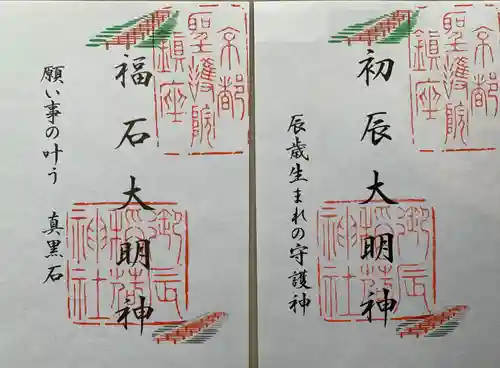 京都
聖護院
鎮座
初辰大明神
辰歳生まれの守護神
御辰
稲荷
神社
京都
聖護院
鎮座
福石大明神
願い事の叶う 真黒石
御辰
稲荷
神社